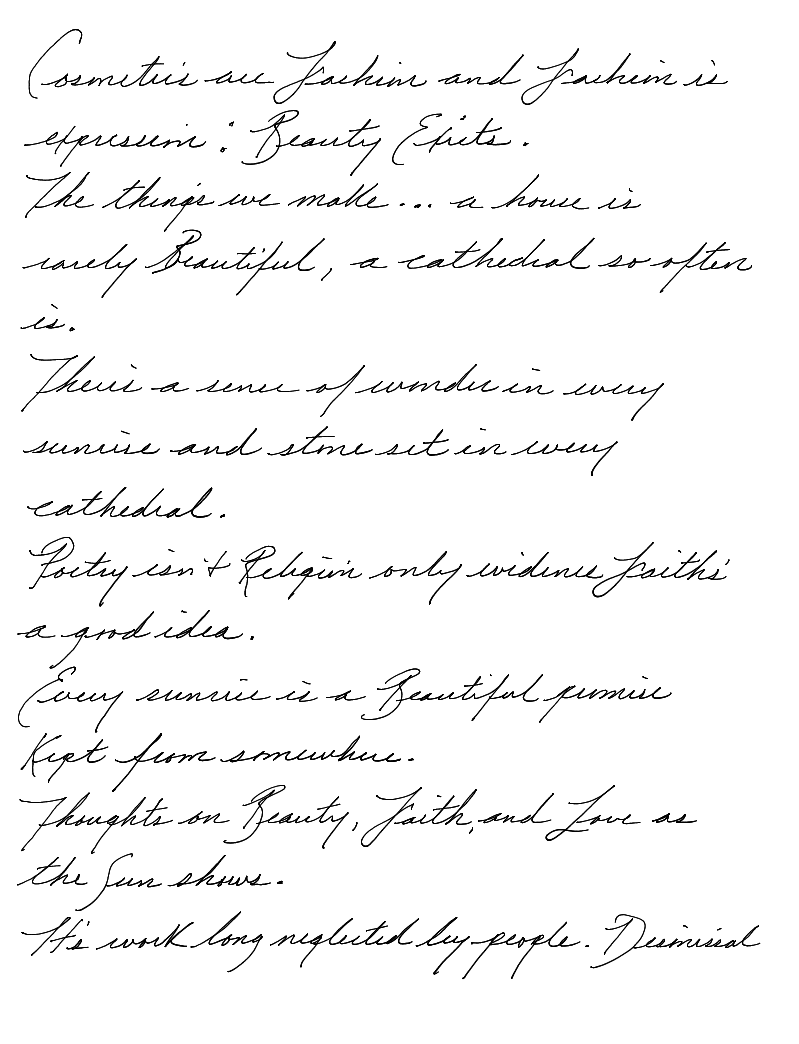 Cosmetics are Fashion and Fashion is
expression : Beauty Exists.
The things we make... a house is
rarely Beautiful, a cathedral so often
is.
There's a sense of wonder in every
sunrise and stone set in every
cathedral.
Poetry isn't Religion only evidence Faith's
a good idea.
Every sunrise is a Beautiful promise
Kept from somewhere.
Thoughts on Beauty, Faith, and Love as
the Sun shows.
It's work long neglected by people. Dismissal